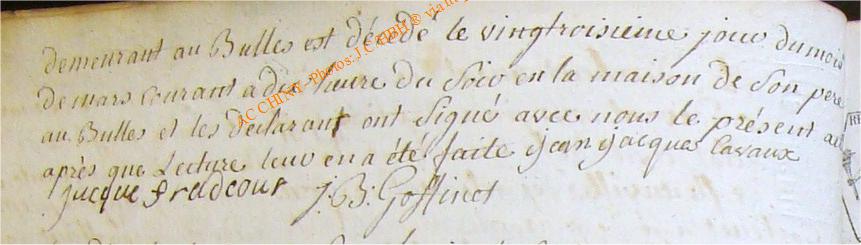 demeurant au Bulles est décédé le vingtroisieme jour du mois
de mars courant a dix heure du Soir en la maison de Son pere
au Bulles et les declarant ont Signé avec nous le présent ac
après que Lecture leur en a été faite jean jacques Lavaux
jacque fradcour J: B: Goffinet
AC CHINY - Photos: J.C.